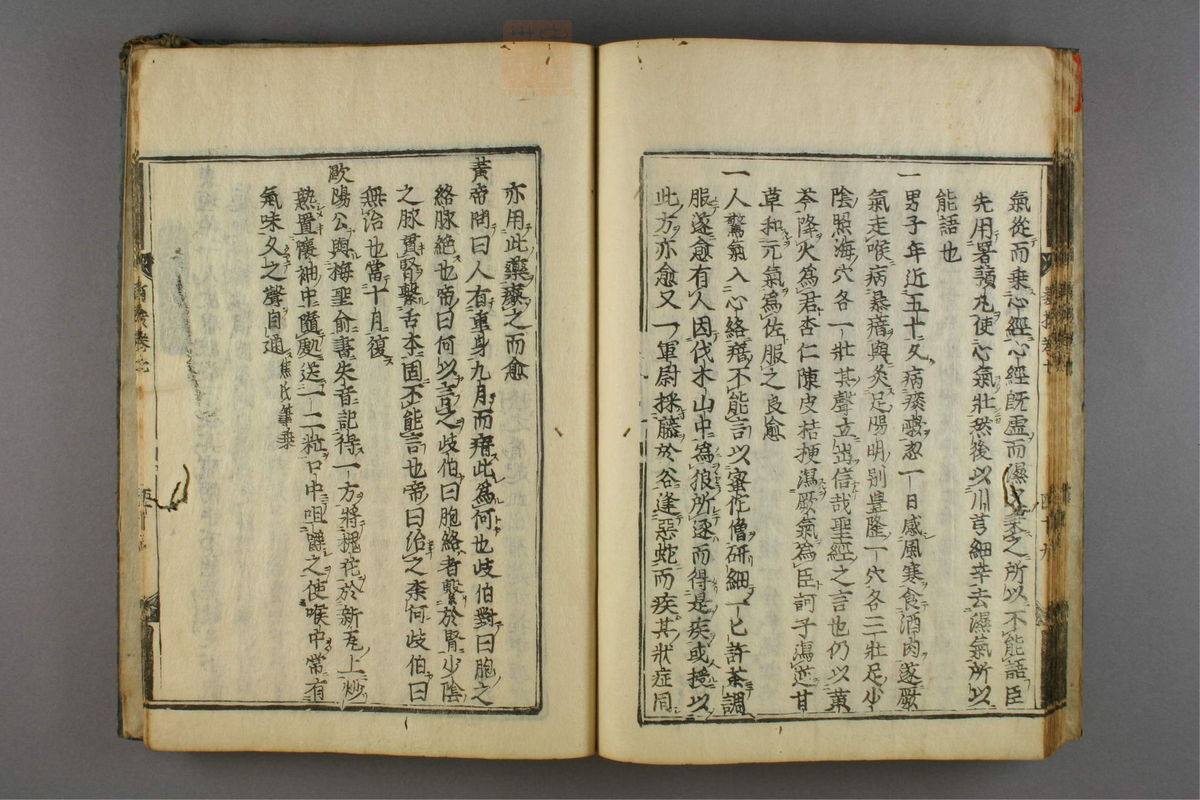 氣從而乘心經心經既虛而濕氣乘之所以不能語臣
先用署蕷丸使心氣壯然後以川芎細辛去濕氣所以
能語也
一男子年近五十久病痰嗽忽一日感風寒食酒肉遂厥
氣走喉病暴瘖與灸足陽明別豊隆一穴各三壯足少
陰照海穴各一壯其聲立出信哉聖經之言也仍以黄
芩降火爲君杏仁陳皮桔梗瀉厥氣爲臣訶子瀉逆甘
草和元氣爲佐服之良愈
一人驚氣入心絡瘖不能言以蜜佗僧研細一匕許茶調
服遂愈有人因伐木山中爲狼所逐而得是疾或授以
此方亦愈又一軍尉採藤於谷逢惡蛇而疾其狀症同
亦用此藥療之而愈
黃帝問曰人有重身九月而瘖此爲何也歧伯對曰胞之
絡脉絶也帝曰何以言之歧伯曰胞絡者繫於腎少陰
之脉貫腎繫舌本固不能言也帝曰治之柰何歧伯曰
無治也當十月復
歐陽公與梅聖俞書失音記得一方將槐花於新瓦上炒
熟置懷袖中隨處送一二粒口中咀嚼之使喉中常有
氣味久之聲自通
焦氏筆乘